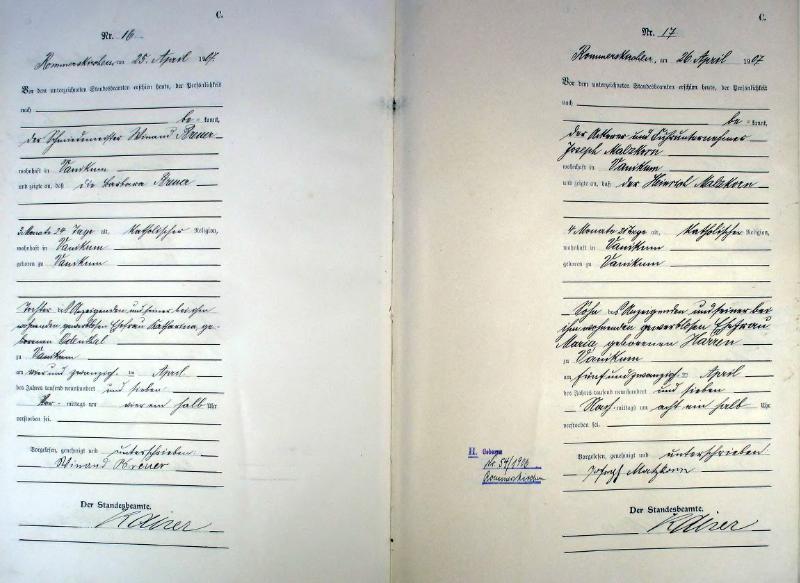 C.
Nr. 16
Rommerskirchen, am 25. April 1907.
Vor dem unterzeichneten Standesbeamten erschien heute, der Persönlichkeit
nach
be=kannt,
der Schmiedmeister Winand Breuer
wohnhaft in Vanikum
und zeigte an, daß die Barbara Breuer
3 Monate 24 Tage alt, katholischer Religion,
wohnhaft in Vanikum
geboren zu Vanikum
Tochter des Anzeigenden und seiner bei ihm
wohnenden gewerblosen Ehefrau Katharina, ge-
borenen Odenthal
zu Vanikum
am vier und zwanzigsten April
des Jahres tausend neunhundert und sieben
Vor-mittags um vier ein halb Uhr
verstorben sei.
Vorgelesen, genehmigt und unterschrieben
Winand Breuer
Der Standesbeamte.
Kaiser
C.
Nr. 17
Rommerskirchen, am 26 April 1907
Vor dem unterzeichneten Standesbeamten erschien heute, der Persönlichkeit
nach
be=kannt,
der Ackerer und Fuhrunternehmer
Joseph Malzkorn
wohnhaft in Vanikum
und zeigte an, daß der Heinrich Malzkorn
4 Monate 21 Tage alt, katholischer Religion,
wohnhaft in Vanikum
geboren zu Vanikum
Sohn des Anzeigenden und seiner bei
ihm wohnenden gewerblosen Ehefrau
Maria, geborenen Harren
zu Vanikum
am fünfundzwanzigsten April
des Jahres tausend neunhundert und sieben
Nach-mittags um acht ein halb Uhr
verstorben sei.
H. Geboren
Nr. 54/1906
Rommerskirchen
Vorgelesen, genehmigt und unterschrieben
Joseph Malzkorn
Der Standesbeamte.
Kaiser